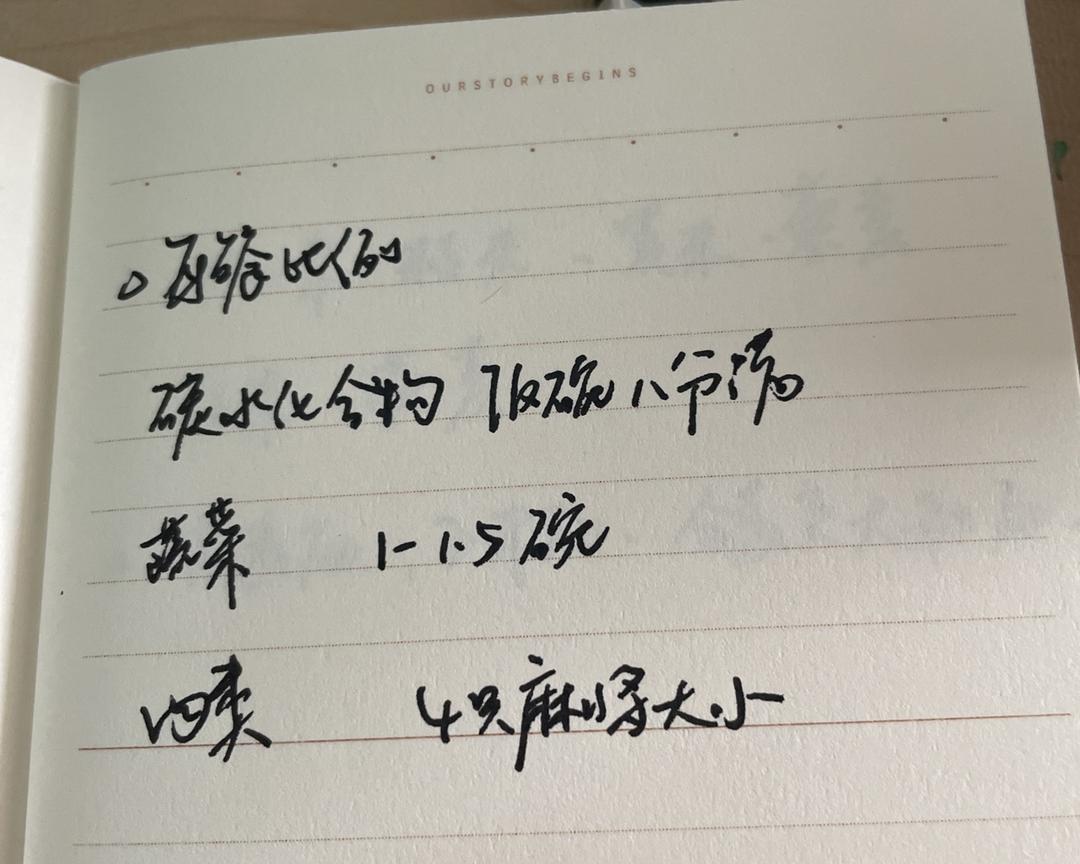 OURSTORYBEGINS
每餐比例
碳水化合物 饭碗八分满
蔬菜 1-1.5碗
肉类 4只麻将大小